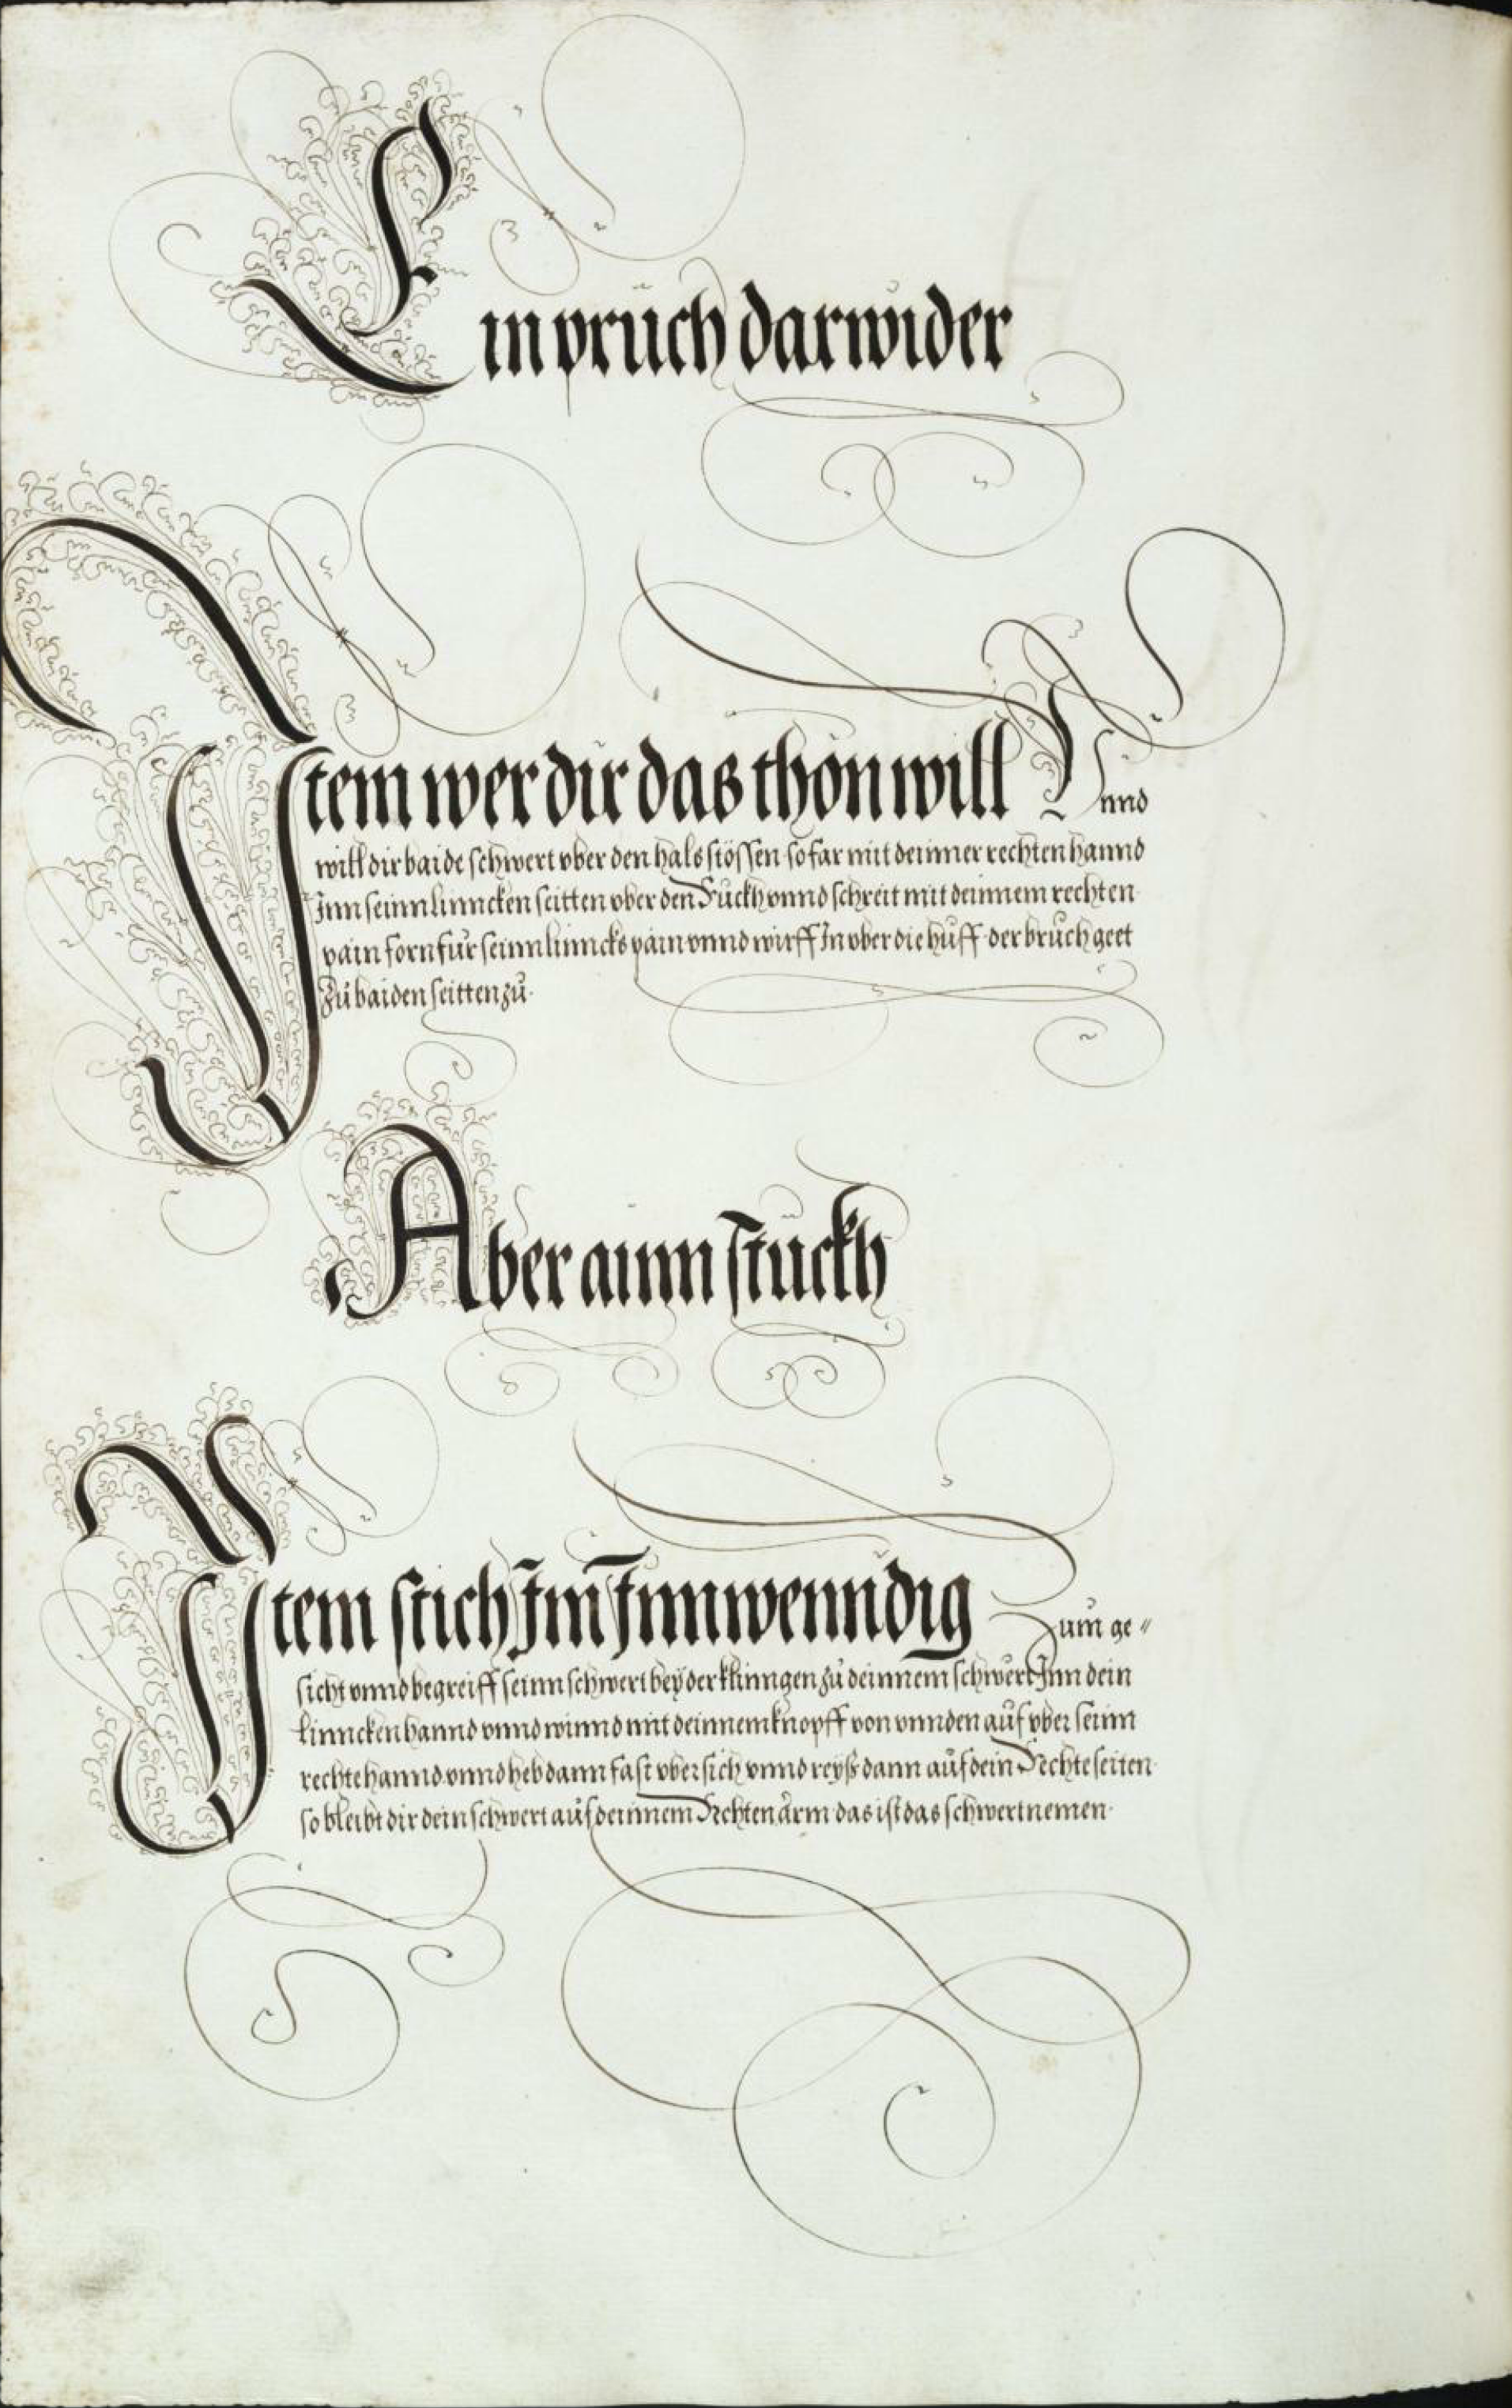 Ein pruch darwider
Item wer dir das thon will Vnnd
will dir baide schwert vber den hals stössen so far mit deinner rechten hannd
Inn seinn linncken seitten vber den Ruckh vnnd schreit mit deinnem rechten
pain forn für seinn linncks pain vnnd wirff In vber die hüff der bruch geet
Zů baiden seitten zů.
Aber ainn stuckh
Item stich Im Innwenndig Zum ge„
sicht vnnd begreiff seinn schwert beÿ der klinngen zů deinnem schwert Inn dein
linncken hannd vnnd winnd mit deinnem knopff von vnnden auf vber seinn
rechte hannd vnnd heb dann fast vber sich vnnd reÿß dann auf dein Rechte seiten
so bleibt dir dein schwert auf deinnem Rechten arm das ist das schwert nemen.